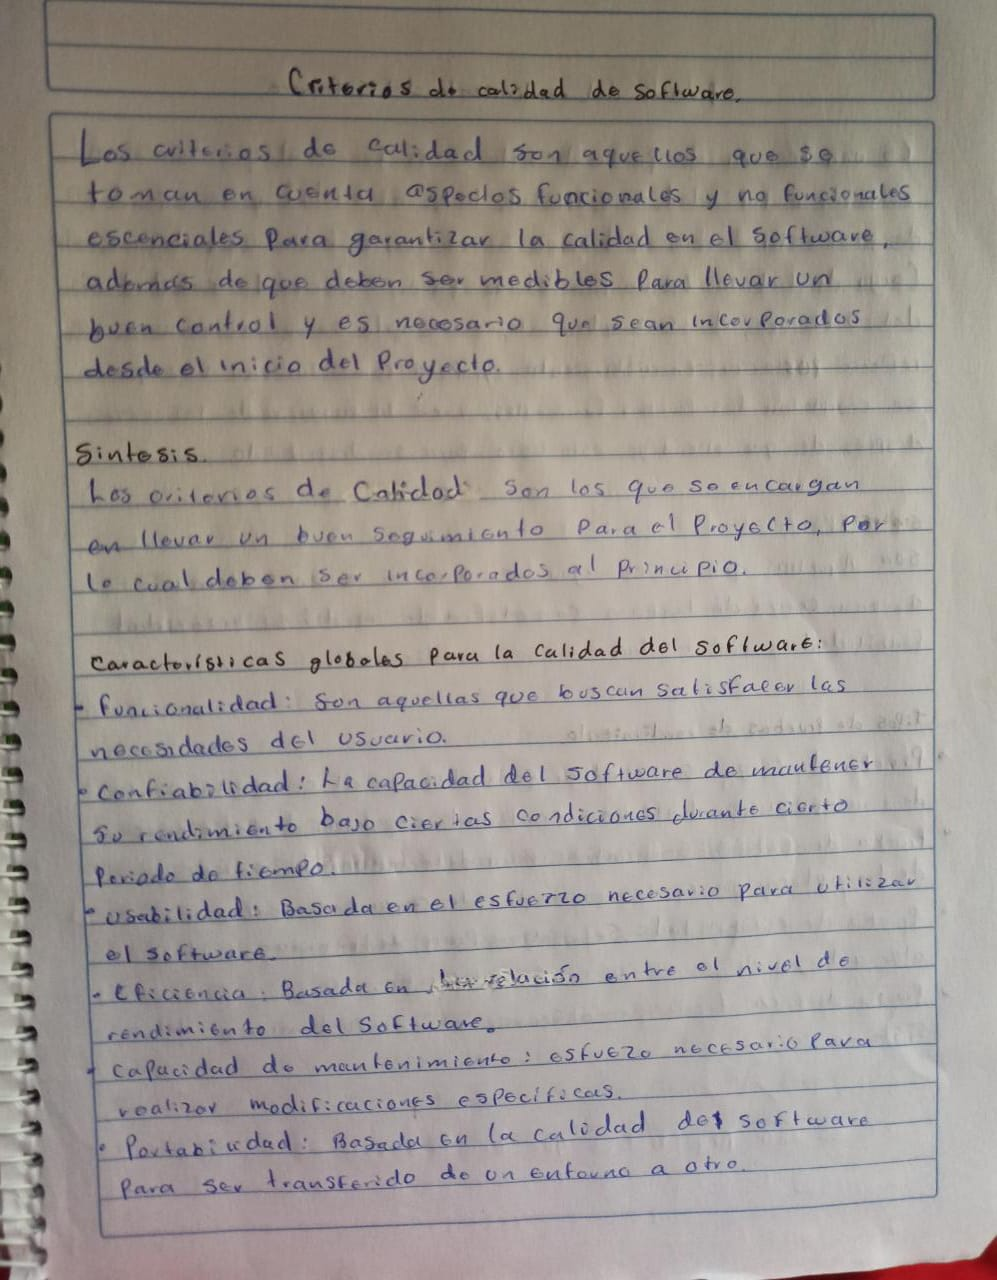 Criterios de calidad de software.
Los criterios de calidad son aquellos que se
toman en cuenta aspectos funcionales y no funcionales
escenciales para garantizar la calidad en el software,
además de que deben ser medibles para llevar un
buen control y es necesario que sean incorporados
desde el inicio del Proyecto.
Sintesis.
Los criterios de Calidad son los que se encargan
en llevar un buen seguimiento para el Proyecto, por
lo cual deben ser incorporados al principio.
Características globales para la calidad del software:
- funcionalidad: Son aquellas que buscan satisfacer las
necesidades del usuario.
• Confiabilidad: La capacidad del software de mantener
su rendimiento bajo ciertas condiciones durante cierto
Periodo de tiempo.
• usabilidad: Basada en el esfuerzo necesario para utilizar
el software.
• Eficiencia: Basada en relación entre el nivel de
rendimiento del software.
• capacidad de mantenimiento: esfuezo necesario para
realizar modificaciones especificas.
• Portabilidad: Basada en la calidad del software
Para ser transferido de un entorno a otro.